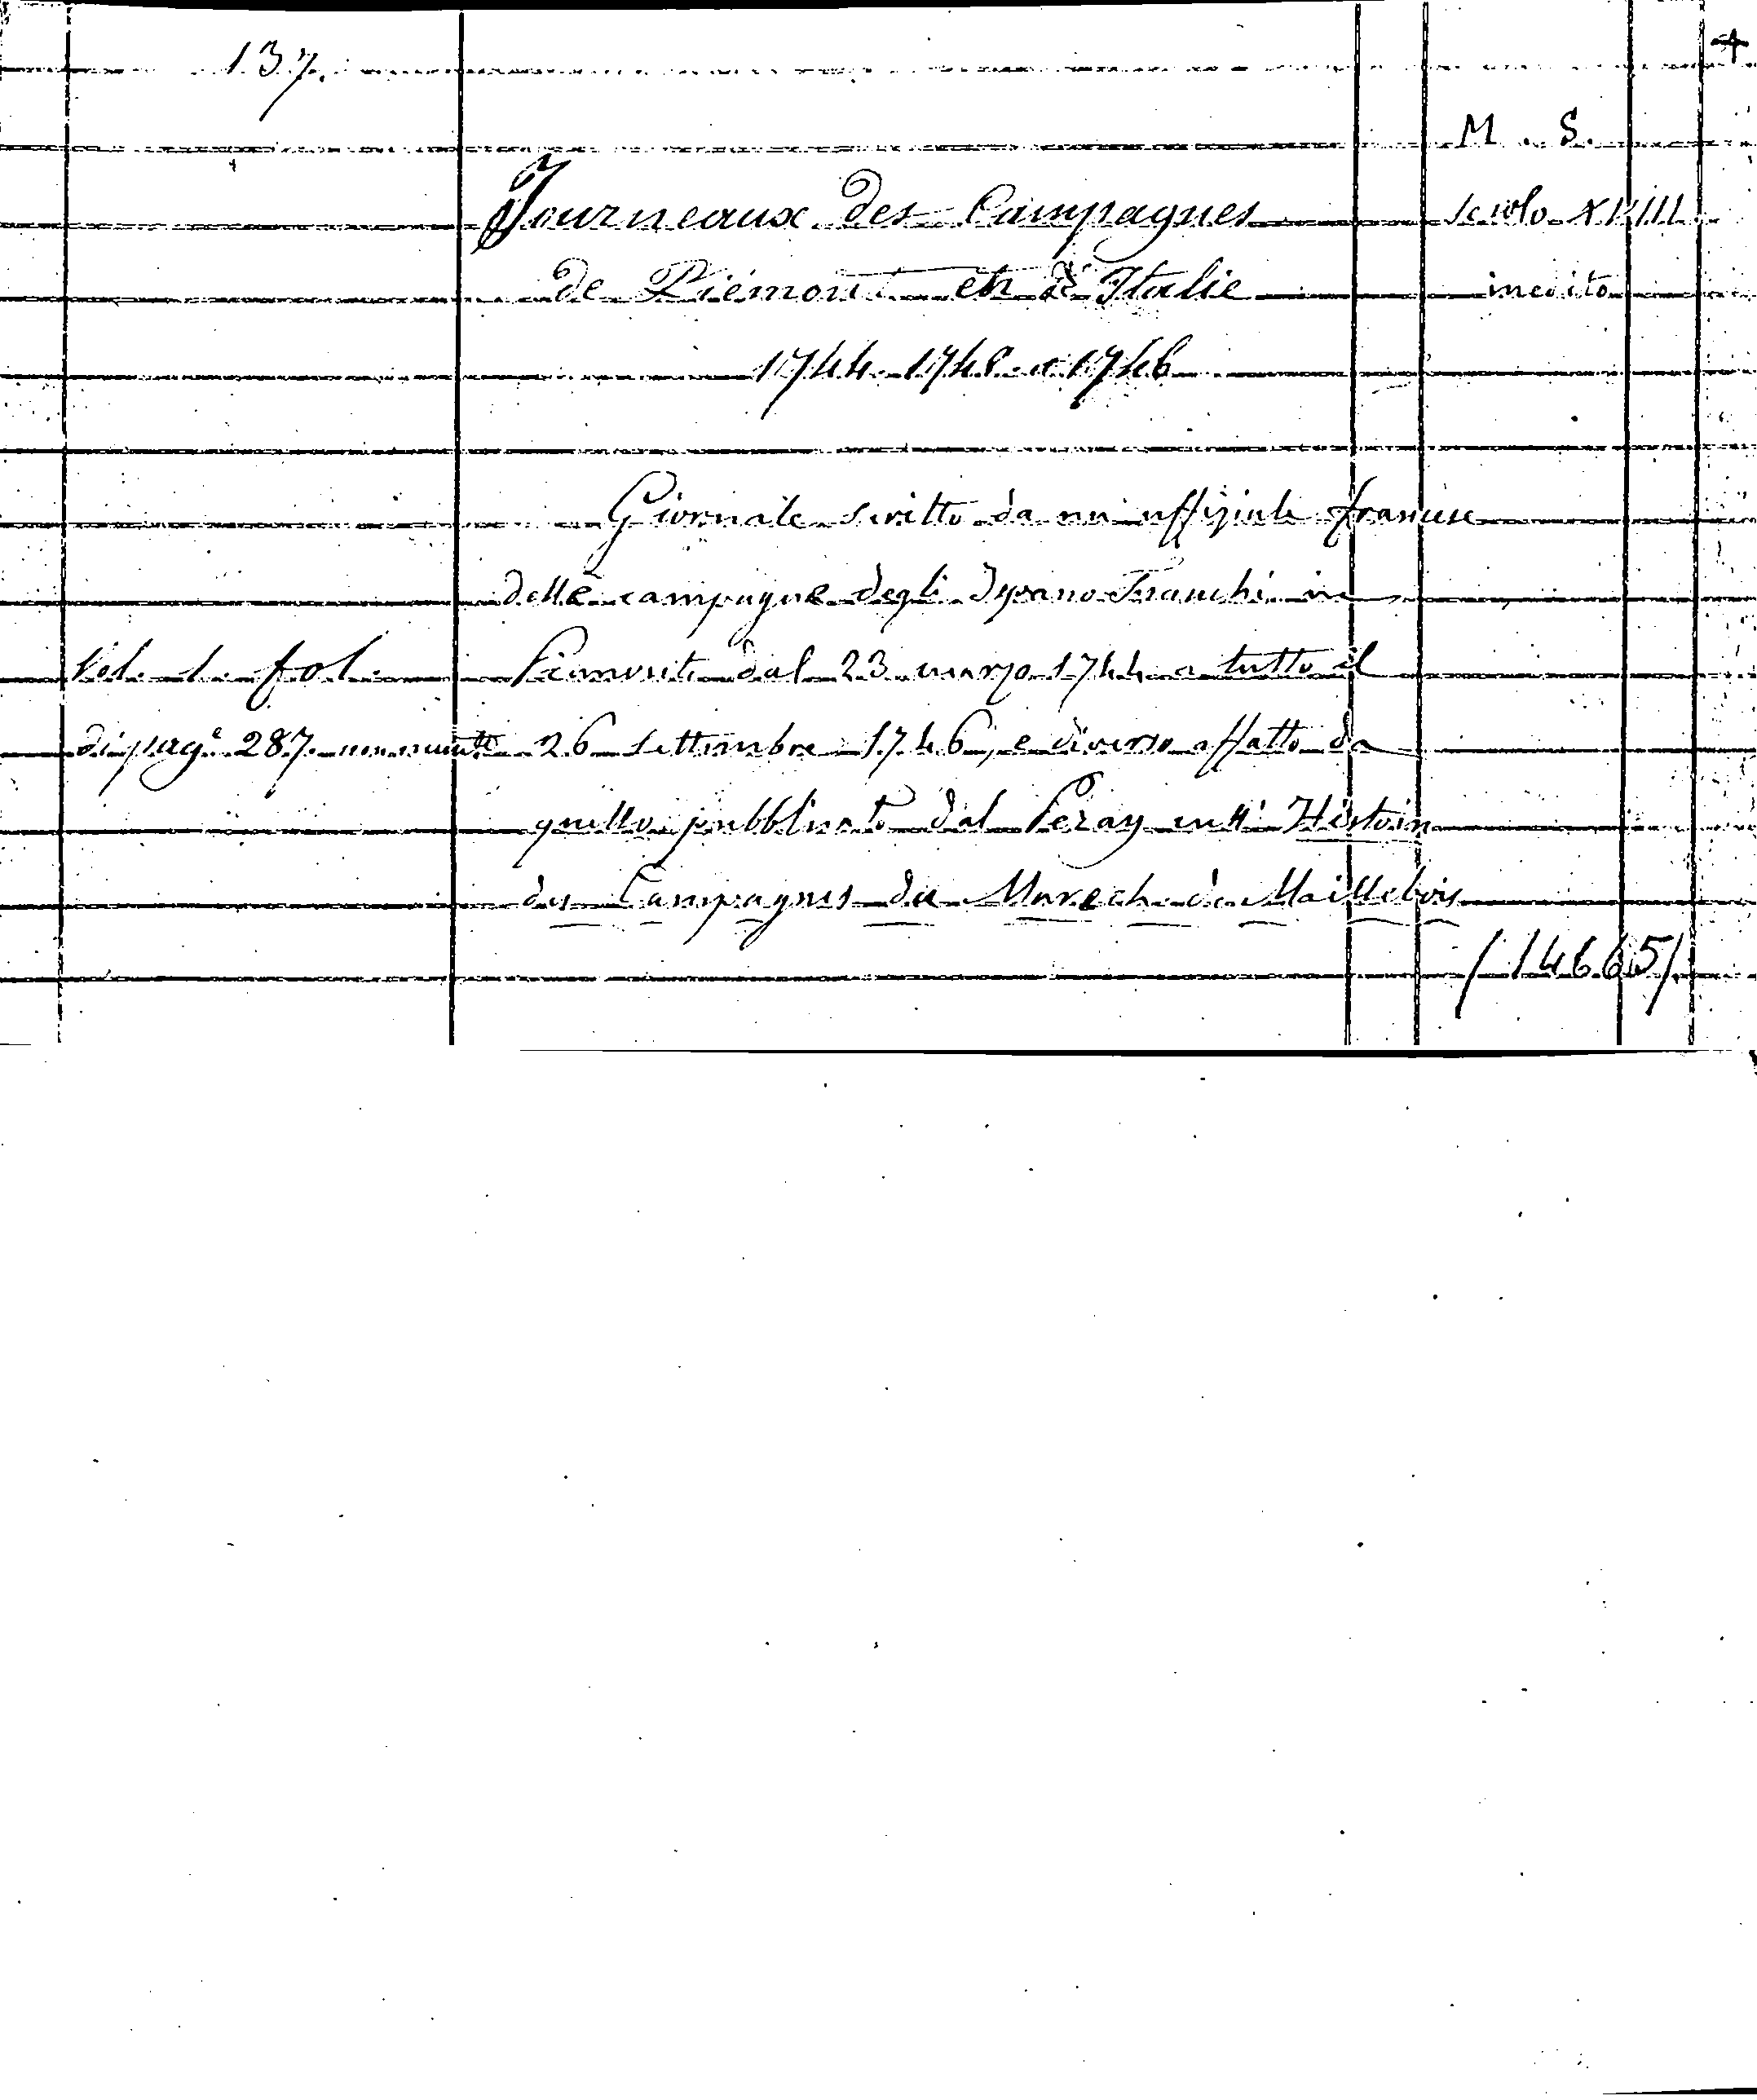 137.
M. S.
Journeaux des Campagnes
secolo XVIII
de Piémont et d'Italie
inedito
1744. 1745. e 1746
Giornale scritto da un uffiziale francese
delle campagne degli Ispano Franchi in
Vol. 1. fol.
Piemonte dal 23 marzo 1744 a tutto il
di pag.e 287. non numte
26 settembre 1746, e diverso affatto da
quello pubblicato dal Pezay nell' Histoire
des Campagnes du Marech. de Maillebois
/14665/